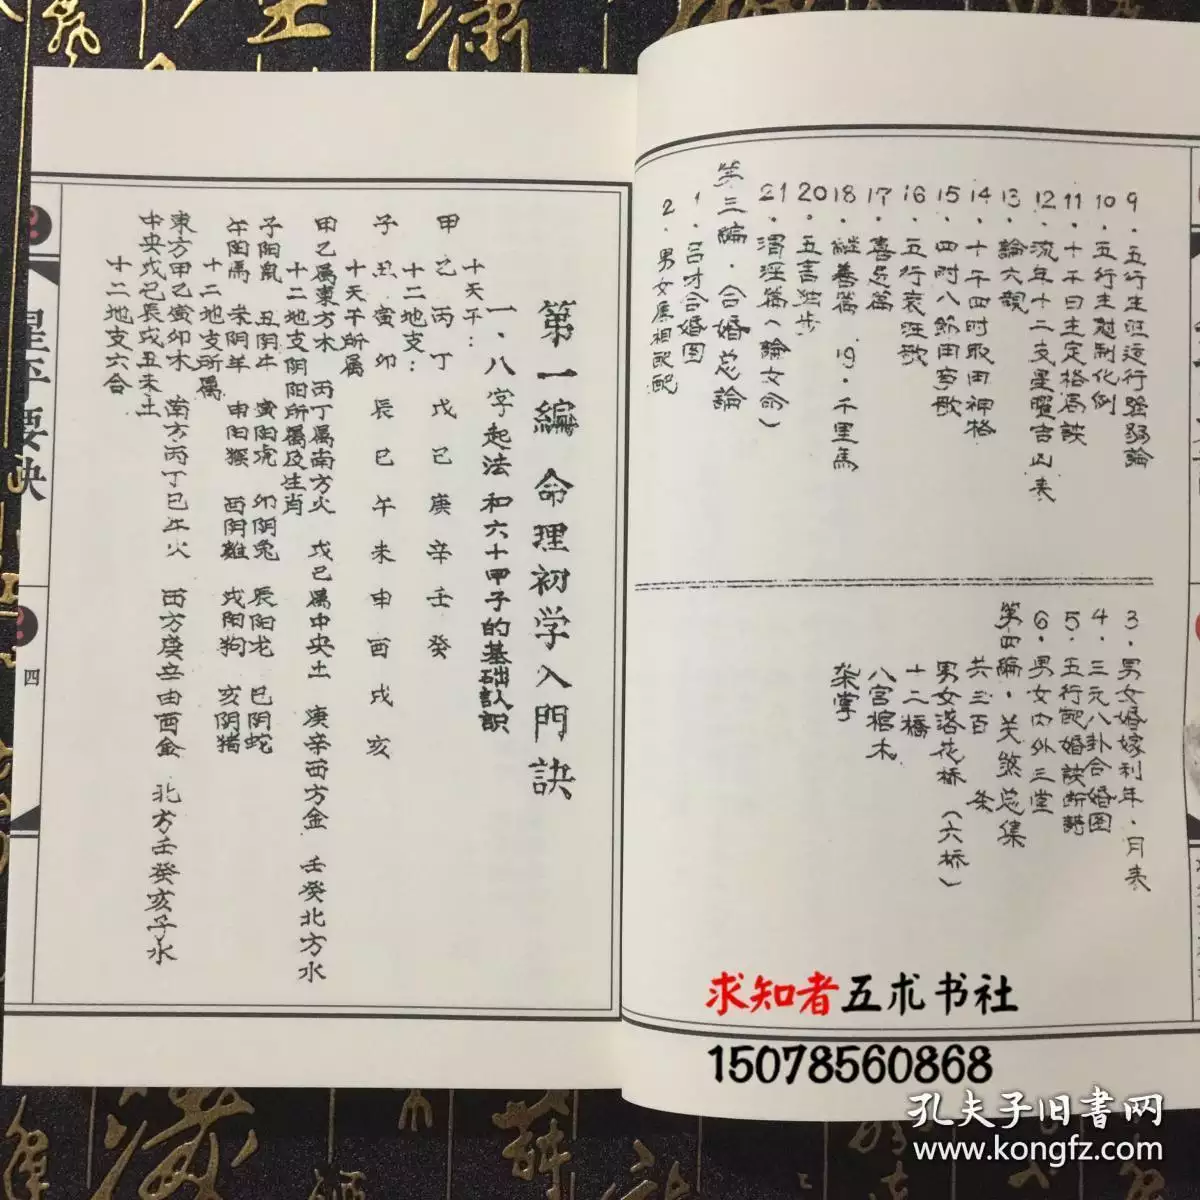 9.五行生旺运行强弱論
10.五行生尅制化例
11.十干日主定格局訣
12.流年十二支星曜吉凶表
13.論六親
14.十干四时取用神格
15.四时八節用事歌
16.五行衰旺歌
17.喜忌篇
18.継善篇 19.千里馬
20.五言独步
21.渭泾篇(論女命)
第三編.合婚总論
1.吕才合婚图
2.男女屬相配配
3.男女婚嫁利年.月表
4.三元八卦合婚图
5.五行配婚訣断
6.男女内外三堂
第四编.关煞总集
共三百 条
男女落花桥(六桥)
十二橋
八宫棺木
架掌
第一編 命理初学入門訣
一.八字起法和六十甲子的基础认识
十天干:
甲乙丙丁戊己庚辛壬癸
十二地支:
子丑寅卯辰巳午未申酉戌亥
十天干所属
甲乙属東方木 丙丁属南方火 戊己属中央土 庚辛西方金 壬癸北方水
十二地支阴阳所属及生肖
子阳鼠 丑阴牛 寅阳虎 卯阴兔 辰阳龙 巳阴蛇
午阳馬 未阴羊 申阳猴 酉阴雞 戌阳狗 亥阴猪
十二地支所属
東方甲乙寅卯木 南方丙丁巳午火 西方庚辛申酉金 北方壬癸亥子水
中央戊己辰戌丑未土
十二地支六合
星平要诀
四
求知者五术书社
15078560868
孔夫子旧書网
www.kongfz.com